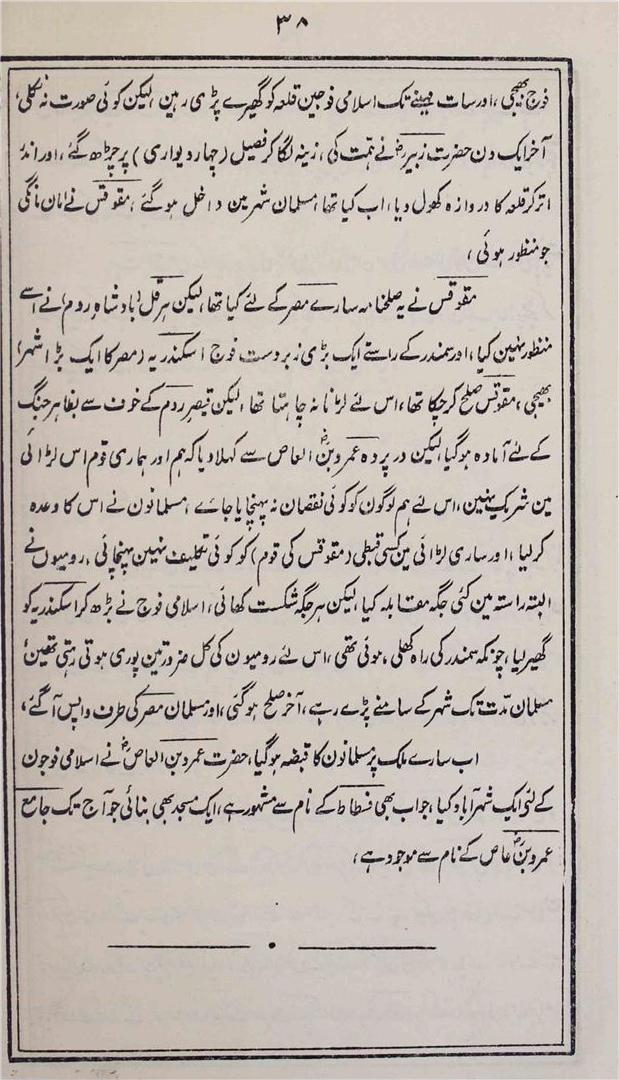 ۳۸
فوج بھیجی، اور سات مہینے تک اسلامی فوجین قلعہ کو گھیرے پڑی رہین، لیکن کوئی صورت نہ نکلی،
آخر ایک دن حضرت زبیرؓ نے ہمّت کی، زینہ لگا کر فصیل (چہار دیواری) پر چڑھ گئے، اور اندر
اتر کر قلعہ کا دروازہ کھول دیا، اب کیا تھا، مسلمان شہر مین داخل ہو گئے، مقوقس نے امان مانگی
جو منظور ہوئی،
مقوقس نے یہ صلحنامہ سارے مصر کے لئے کیا تھا، لیکن ہرقل (بادشاہِ روم) نے اسے
منظور نہین کیا، اور سمندر کے راستے ایک بڑی زبردست فوج اسکندریہ (مصر کا ایک بڑا شہر)
بھیجی، مقوقس صلح کر چکا تھا، اس لئے لڑنا نہ چاہتا تھا، لیکن قیصرِ روم کے خوف سے بظاہر جنگ
کے لئے آمادہ ہو گیا لیکن در پردہ عمرو بنؓ العاص سے کہلا دیا کہ ہم اور ہماری قوم اس لڑائی
مین شریک نہین، اس لئے ہم لوگون کو کوئی نقصان نہ پہنچایا جائے، مسلمانون نے اس کا وعدہ
کر لیا، اور ساری لڑائی مین کسی قبطی (مقوقس کی قوم) کو کوئی تکلیف نہین پہنچائی، رومیون نے
البتہ راستہ مین کئی جگہ مقابلہ کیا، لیکن ہر جگہ شکست کھائی، اسلامی فوج نے بڑھ کر اسکندریہ کو
گھیر لیا، چونکہ سمندر کی راہ کھلی ہوئی تھی، اس لئے رومیون کی کل ضرورتین پوری ہوتی رہتی تھین،
مسلمان مدّت تک شہر کے سامنے پڑے رہے، آخر صلح ہو گئی، اور مسلمان مصر کی طرف واپس آ گئے،
اب سارے ملک پر مسلمانون کا قبضہ ہو گیا، حضرت عمرو بن العاصؓ نے اسلامی فوجون
کے لئی ایک شہر آباد کیا، جو اب بھی فسطاط کے نام سے مشہور ہے، ایک مسجد بھی بنائی جو آج تک جامع
عمرو بنؓ عاص کے نام سے موجود ہے،